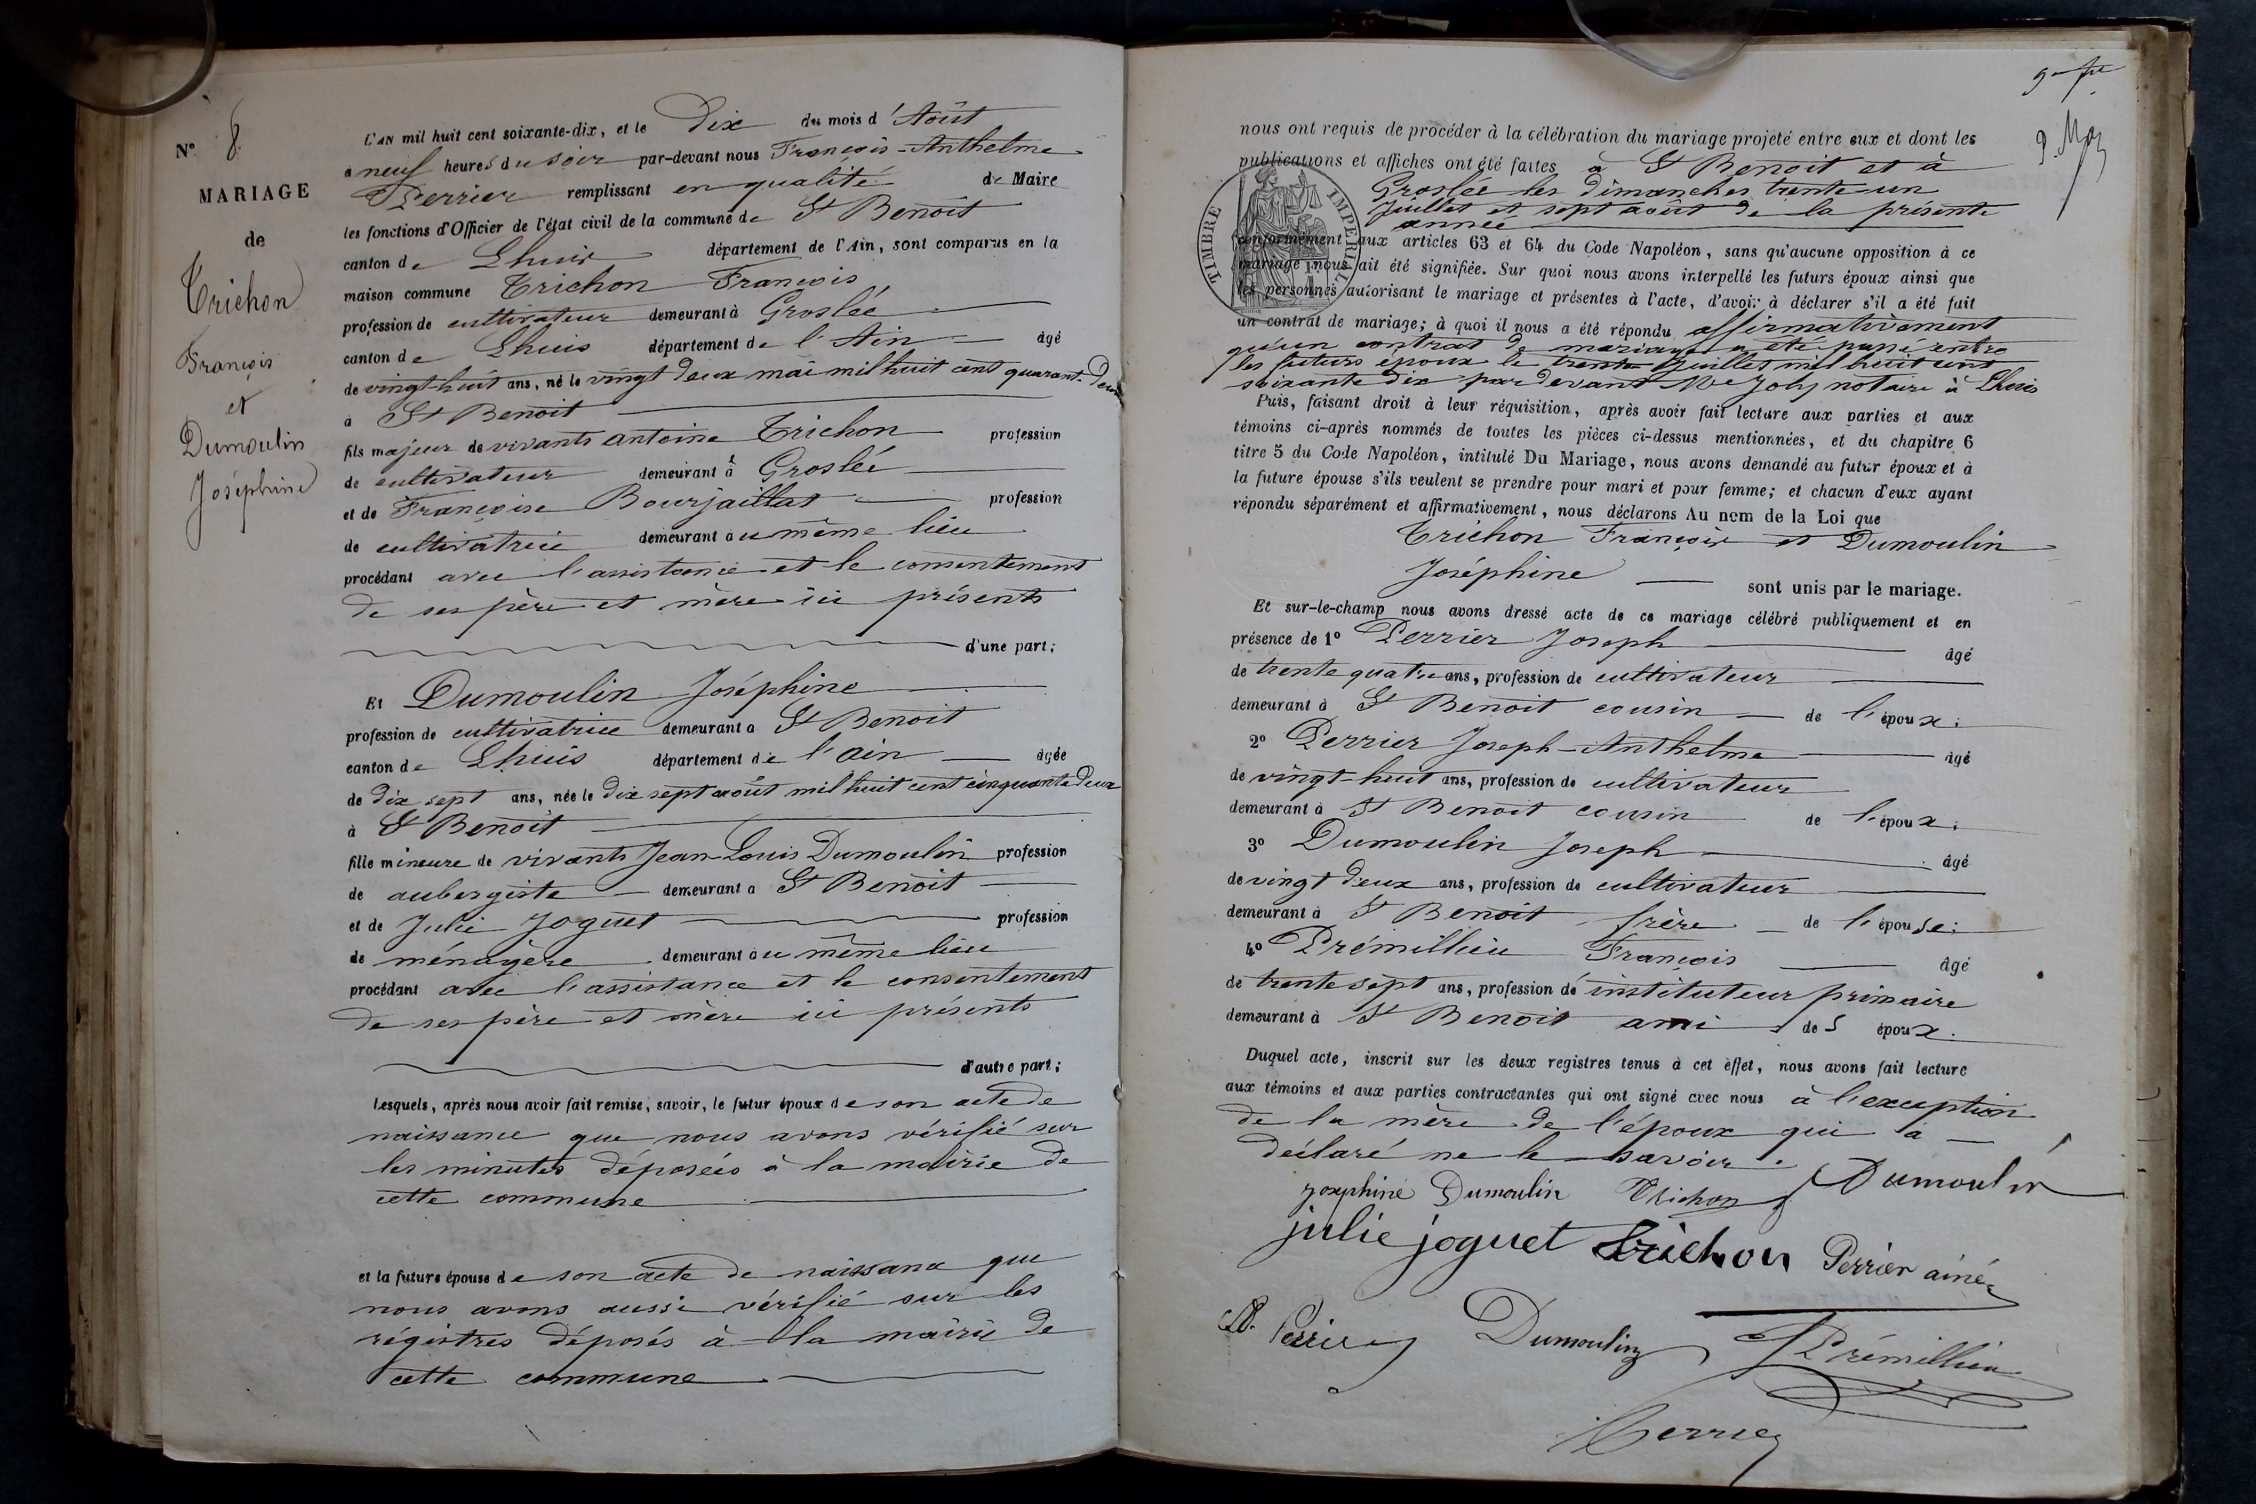 N° 8.
MARIAGE
de
Trichon
François
et
Dumoulin
Joséphine
L'AN mil huit cent soixante-dix, et le Dix du mois d'Août
à neuf heures du soir par-devant nous François-Anthelme
Perrier remplissant en qualité de Maire
les fonctions d'Officier de l'état civil de la commune de St Benoit
canton de Lhuis département de l'Ain, sont comparus en la
maison commune Trichon François
profession de cultivateur demeurant à Groslée
canton de Lhuis département de l'Ain âgé
de vingt-huit ans, né le vingt deux mai mil huit cent quarante-Deux
à St Benoit
fils majeur de vivants antoine Trichon profession
de cultivateur demeurant à Groslée
et de Françoise Bourjaillat profession
de cultivatrice demeurant au même lieu
procédant avec l'assistance et le consentement
de ses père et mère ici présents
d'une part;
Et Dumoulin Joséphine
profession de cultivatrice demeurant à St Benoit
canton de Lhuis département de l'ain âgée
de dix sept ans, née le dix sept août mil huit cent cinquante Deux
à St Benoit
fille mineure de vivants Jean-Louis Dumoulin profession
de aubergiste demeurant à St Benoit
et de Julie Joguet profession
de ménagère demeurant au même lieu
procédant avec l'assistance et le consentement
de ses père et mère ici présents
d'autre part;
Lesquels, après nous avoir fait remise, savoir, le futur époux de son acte de
naissance que nous avons vérifié sur
les minutes déposées à la mairie de
cette commune
et la future épouse de son acte de naissance que
nous avons aussi vérifié sur les
régistres déposés à la mairie de
cette commune
nous ont requis de procéder à la célébration du mariage projeté entre eux et dont les
publications et affiches ont été faites à St Benoit et à
Groslée les dimanches trente un
Juillet et sept août de la présente
année
TIMBRE IMPERIAL
conformément aux articles 63 et 64 du Code Napoléon, sans qu'aucune opposition à ce
mariage nous ait été signifiée. Sur quoi nous avons interpellé les futurs époux ainsi que
les personnes autorisant le mariage et présentes à l'acte, d'avoir à déclarer s'il a été fait
un contrat de mariage; à quoi il nous a été répondu affirmativement
qu'un contrat de mariage a été passé entre
les futurs époux le trente Juillet mil huit cent
soixante dix par devant Me Joly notaire à Lhuis
Puis, faisant droit à leur réquisition, après avoir fait lecture aux parties et aux
témoins ci-après nommés de toutes les pièces ci-dessus mentionnées, et du chapitre 6
titre 5 du Code Napoléon, intitulé Du Mariage, nous avons demandé au futur époux et à
la future épouse s'ils veulent se prendre pour mari et pour femme; et chacun d'eux ayant
répondu séparément et affirmativement, nous déclarons Au nom de la Loi que
Trichon François et Dumoulin
Joséphine sont unis par le mariage.
Et sur-le-champ nous avons dressé acte de ce mariage célébré publiquement et en
présence de 1° Perrier Joseph âgé
de trente quatre ans, profession de cultivateur
demeurant à St Benoit cousin de l'époux;
2° Perrier Joseph-Anthelme âgé
de vingt-huit ans, profession de cultivateur
demeurant à St Benoit cousin de l'époux;
3° Dumoulin Joseph âgé
de vingt deux ans, profession de cultivateur
demeurant à St Benoit frère de l'épouse;
4° Prémillieu François âgé
de trente sept ans, profession de instituteur primaire
demeurant à St Benoit ami des époux.
Duquel acte, inscrit sur les deux registres tenus à cet effet, nous avons fait lecture
aux témoins et aux parties contractantes qui ont signé avec nous à l'exception
de la mère de l'époux qui a
déclaré ne le savoir.
Joséphine Dumoulin Trichon Dumoulin
julie joguet trichon Perrier ainé
Perrier Dumoulin Prémillieu
Perrier